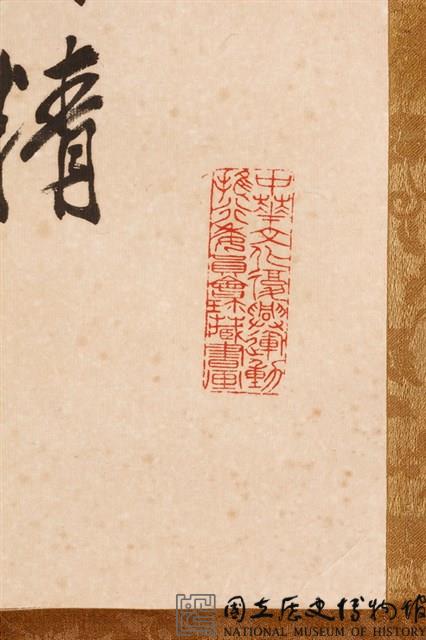 中華文化復興運動
推行委員會藏書
國立歷史博物館
NATIONAL MUSEUM OF HISTORY